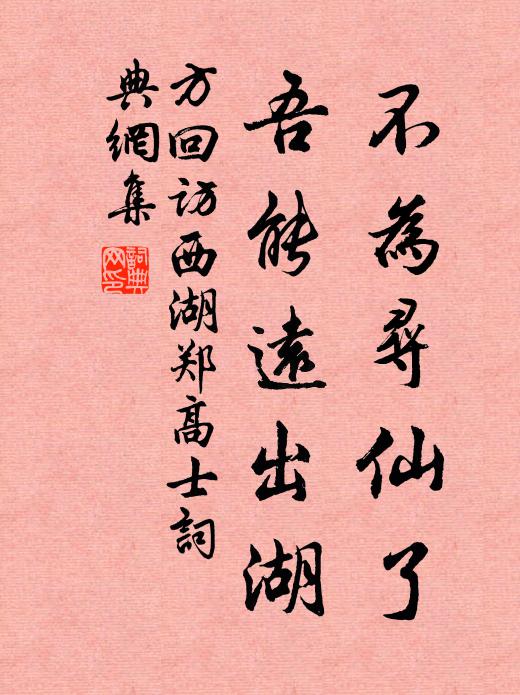 不為尋仙了
吾能遠出湖
方回访西湖郑高士詞
典網集
詞典網印